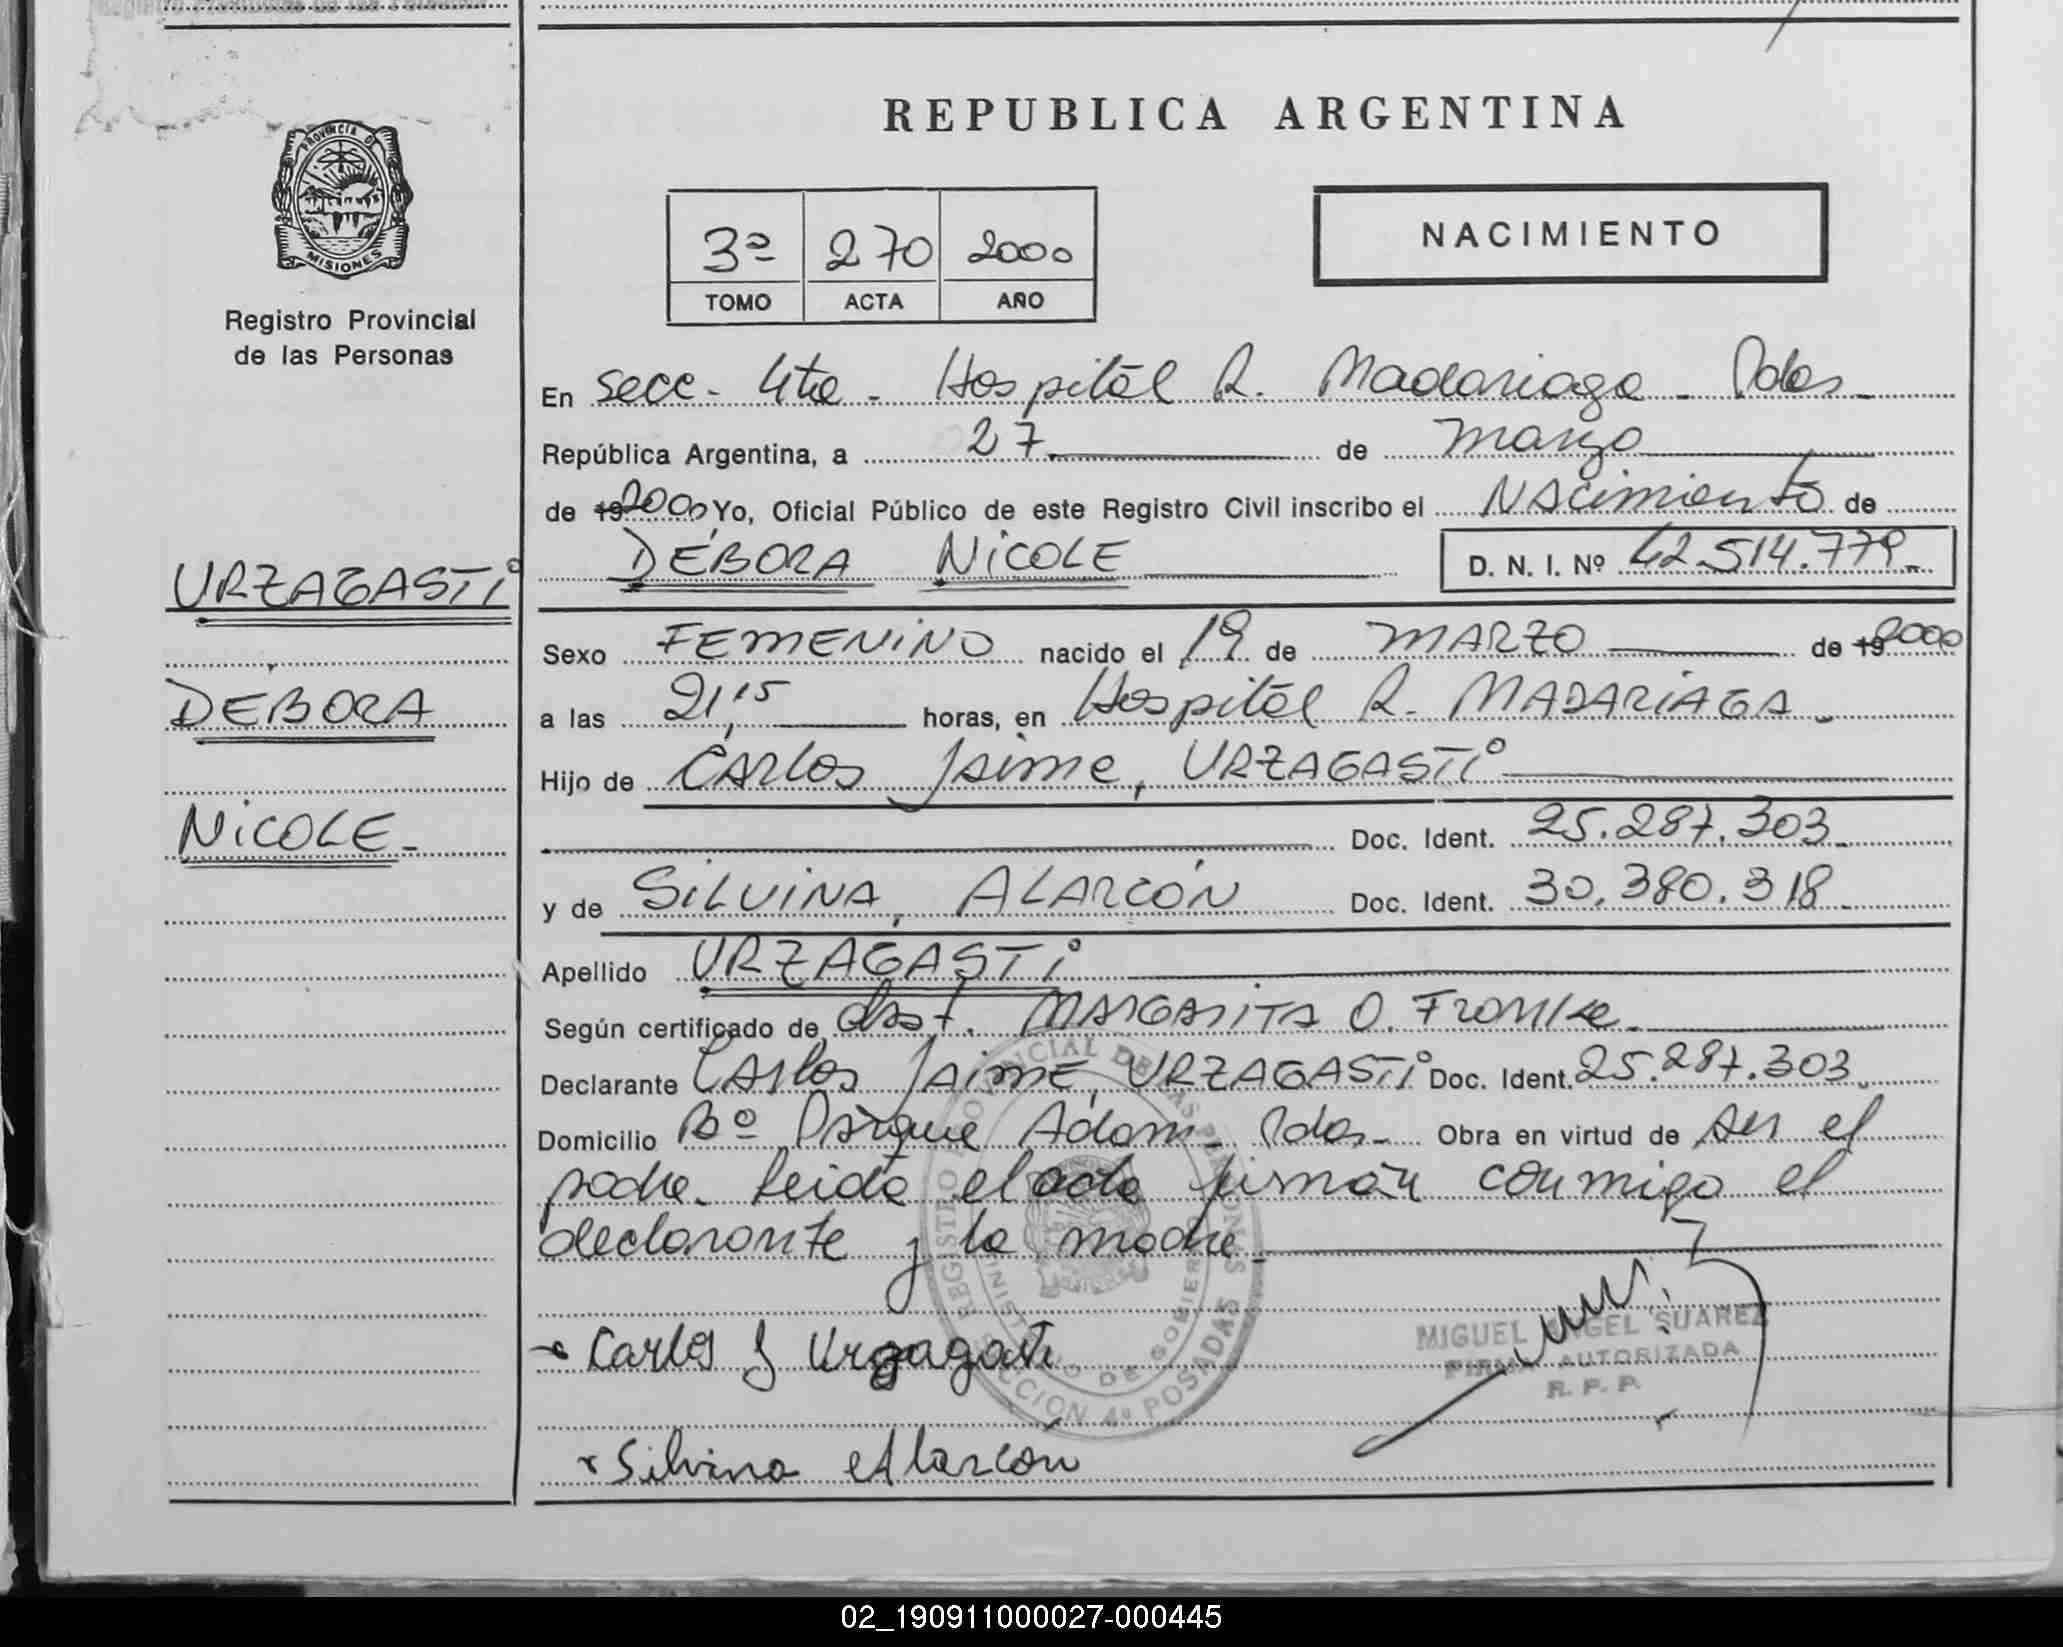 REPUBLICA ARGENTINA
PROVINCIA DE
MISIONES
Registro Provincial
de las Personas
3º 270 2000
TOMO ACTA AÑO
NACIMIENTO
En Secc. 4ta. Hospital R. Madariaga. Pdas.
República Argentina, a 27 de Marzo
de 19 2000 Yo, Oficial Público de este Registro Civil inscribo el NAcimiento de
DÉBORA NiCOLE D. N. I. Nº 42.514.779.
URZAGASTi
Sexo FEMENiNO nacido el 19 de MARZO de 19 2000
DÉBORA
a las 21,15 horas, en Hospital R. MADARiAGA.
Hijo de CArlos JAime, URZAGASTi
NiCOLE.
Doc. Ident. 25.287.303.
y de SiLViNA, ALARCÓN Doc. Ident. 30.380.318.
Apellido URZAGASTi
Según certificado de Obst. MARGARiTA O.
Declarante CArlos JAime, URZAGASTi Doc. Ident. 25.287.303.
Domicilio Bº Parque Adam. Pdas. Obra en virtud de ser el
padre. Leida el acta firman conmigo el
declarante y la madre.
REGISTRO PROVINCIAL DE LAS PERSONAS
MINISTERIO DE GOBIERNO
SECCION 4ª POSADAS
Carlos J Urzagasti
MIGUEL ANGEL SUAREZ
FIRMA AUTORIZADA
R. P. P.
Silvina Alarcón
02_190911000027-000445